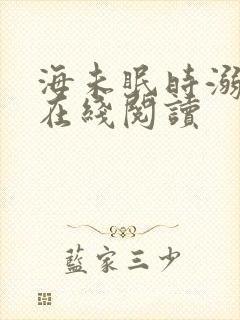 海未眠時溺
在綫閱讀
藍家三少